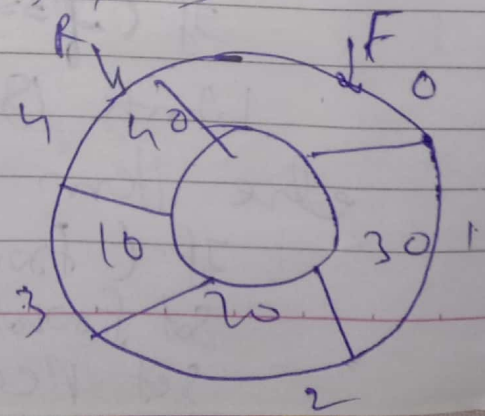 R F
0
4 40
10 30 1
3 20
2